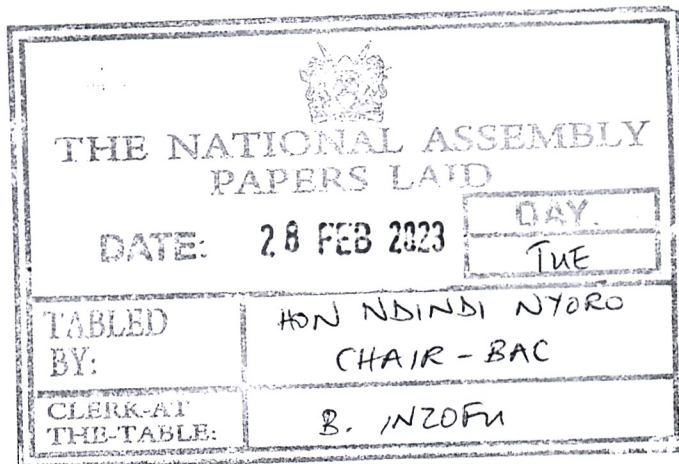 THE NATIONAL ASSEMBLY
PAPERS LAID
DATE: 28 FEB 2023
DAY.
TUE
TABLED BY:
HON NDINDI NYORO
CHAIR - BAC
CLERK-AT THE-TABLE:
B. INZOFU